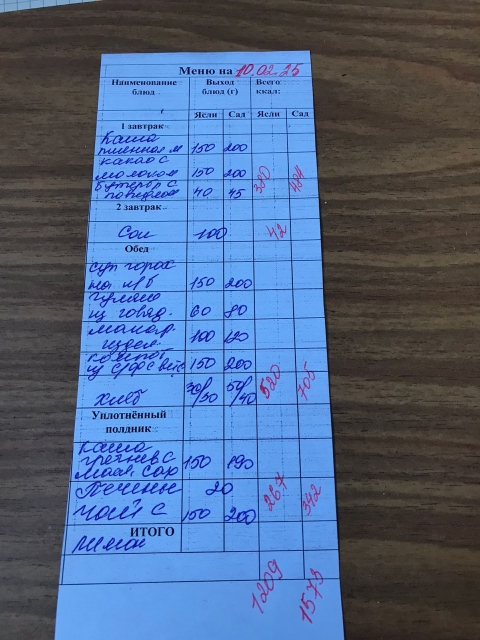 Меню на 10.02.25
Наименование блюд Выход блюд (г) Всего ккал:
Ясли Сад Ясли Сад
1 завтрак
Каша
пшенная м 150 200
какао с
молоком 150 200
бутерброд с
повидлом 40 45 380 484
2 завтрак
Сок 100 42
Обед
суп горох
на м/б 150 200
гуляш
из говяд. 60 80
макар.
издел. 100 120
компот
из 150 200
хлеб 30/30 50/40 520 705
Уплотнённый
полдник
Каша
гречнев с
масл. сах 150 190
Печенье 20
чай с 150 200 267 342
ИТОГО
лимон
1209 1573